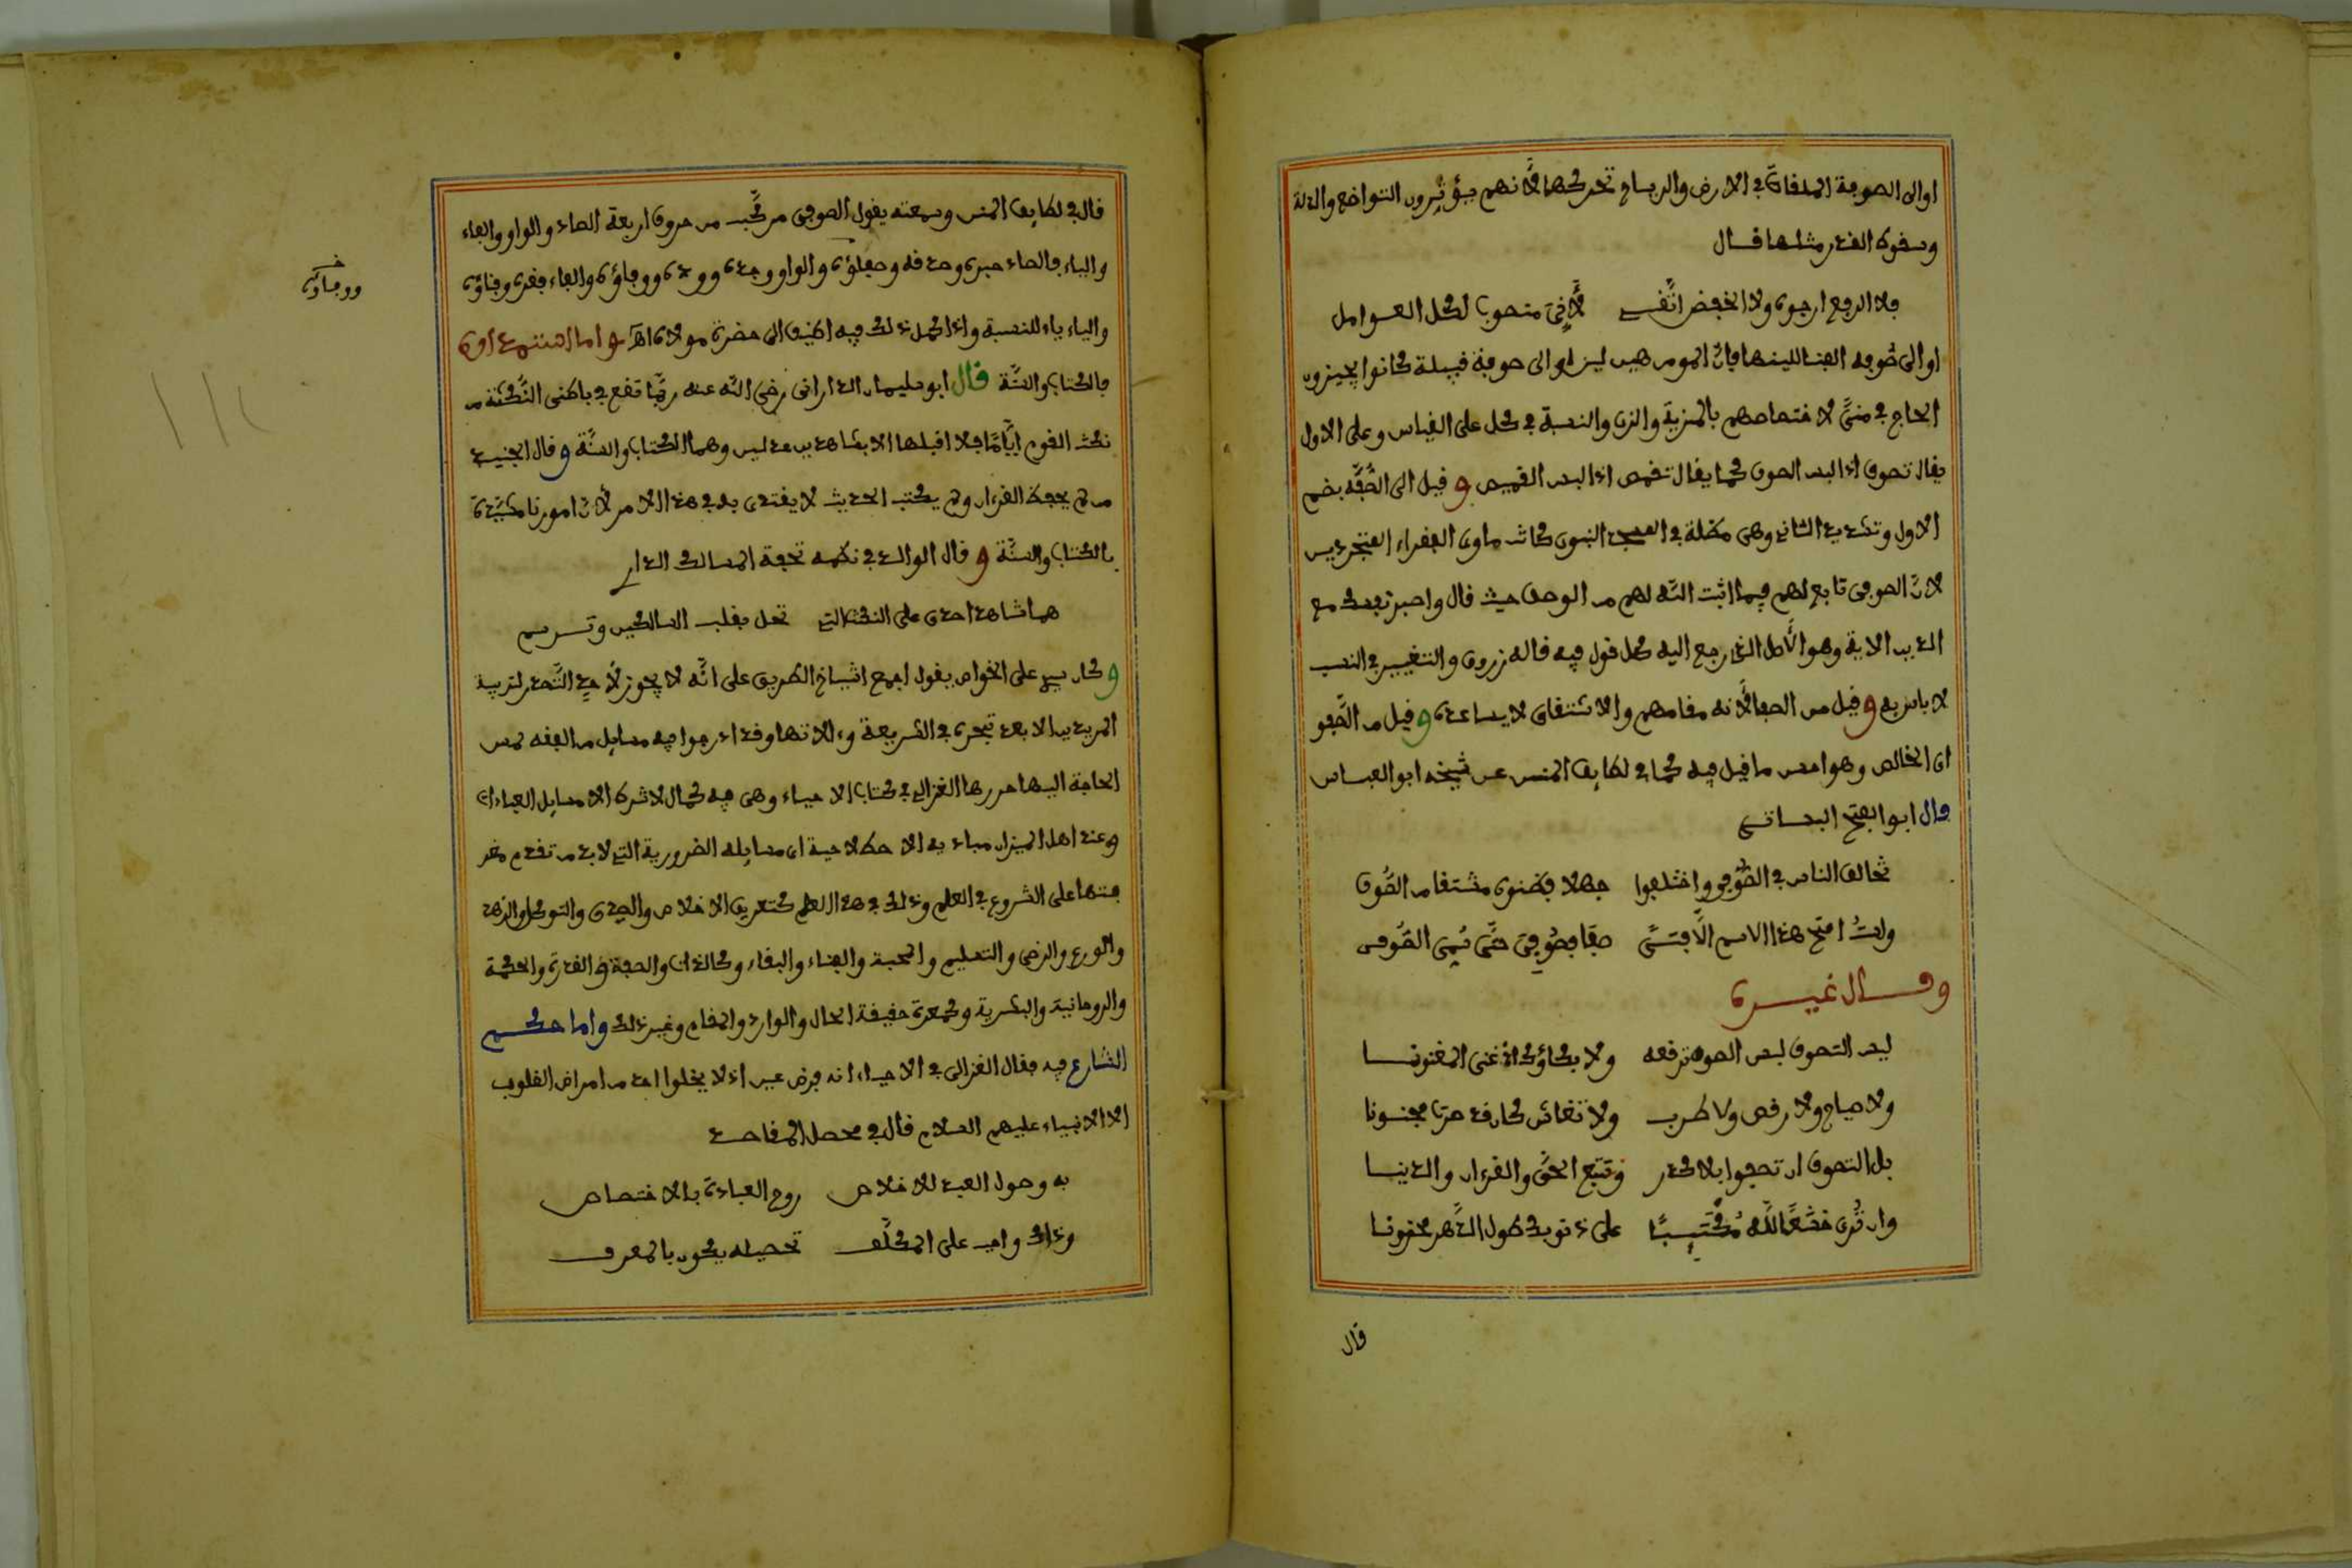 او الى الصوفة الملقاة في الارض والرياح تحركها لأنهم يؤثرون التواضع والذلة
وسقوط القدر مثلها قال
فلا الرفع ارجوه ولا الخفض اتقي لأني منصوبا لكل العوامل
او الى صوفة القفا للينها فان المومن هين لين او الى صوفة قبيلة كانوا يجيزون
الحاج في منى لاختصاصهم بالمزية والزي والنسبة في كل على القياس وعلى الاول
يقال تصوف اذا لبس الصوف كما يقال تقمص اذا لبس القميص وقيل الى الصُّفَّة بضم
الاول وتشديد الثاني وهي مظلة في المسجد النبوي كانت ماوى الفقراء المتجردين
لان الصوفي تابع لهم فيما اثبت الله لهم من الوصف حيث قال واصبر نفسك مع
الذين الاية وهو الأصل الذي رجع اليه كل قول فيه قاله زروق والتغيير في النسب
لا باس به وقيل من الصفا لأنه مقامهم والاشتقاق لا يساعده وقيل من الصَّفو
اي الخالص وهو احسن ما قيل فيه كما في لطايف المنن عن شيخه ابو العباس
قال ابو الفتح البستي
تخالف الناس في الصُّوفي واختلفوا جهلا فظنوه مشتقا من الصُّوف
ولستُ امنح هذا الاسم الَّا فتىً صفا فصُوفِيَ حتَّى سُمِّي الصُّوفي
وقال غيره
ليس التصوف لبس الصوف ترقعه ولا بكاؤك اذ غنى المغنونا
ولا صياح ولا رقص ولا طرب ولا تغاش كان قد صرت مجنونا
بل التصوف ان تصفوا بلا كدر وتتبع الحقَّ والقرءان والدينا
وان تُرى خشَّعًا لله مُكْتَئِبًا على ذنوبك طول الدَّهر محزونا
قال
قال في لطايف المنن وسمعته يقول الصوفي مركَّب من حروف اربعة الصاد والواو والفاء
والياء فالصاد صبره وصدقه وصفاؤه والواو وجده ووده ووفاؤه والفاء فقره وفناؤه
والياء ياء للنسبة واذا كمل ذلك فيه اضيف الى حضرة مولاه اهـ واما استمداده
فالكتاب والسنَّة قال ابو سليمان الداراني رضي الله عنه ربَّما تقع في باطني النُّكتة من
نكت القوم ايَّامًا فلا اقبلها الا بشاهدين عدلين وهما الكتاب والسنَّة وقال الجنيد
من لم يحفظ القرءان ولم يكتب الحديث لا يقتدى به في هذا الامر لأنَّ امورنا مقيَّدة
بالكتاب والسنَّة وقال الوالد في نظمه تحفة المسالك الدار
هما شاهدا صدق على النكت التي تحل بقلب السالكين وترسم
وكان سيد على الخواص يقول اجمع اشياخ الطريق على انَّه لا يجوز لأحد التَّصدر لتربية
المريدين الا بعد تبحره في الشريعة وءالاتها وقد ادرجوا فيه مسايل من الفقه لمس
الحاجة اليها حررها الغزالي في كتاب الاحياء وهي فيه كمال لا شرط الا مسايل العبادات
وعند اهل الميزان مباديه الاصطلاحية اي مسايله الضرورية التي لا بد من تقدم معر
فتها على الشروع في العلم وذلك في هذا العلم كتعريف الاخلاص والصدق والتوكل والزهد
والورع والرضى والتسليم والمحبة والفناء والبقاء وكالذات والصفة والقدرة والحكمة
والروحانية والبشرية وكمعرفة حقيقة الحال والوارد والمقام وغير ذلك واما حكم
الشارع فيه فقال الغزالي في الاحياء انه فرض عين اذ لا يخلوا احد من امراض القلوب
الا الانبياء عليهم السلام قال في محصل المقاصد
به وصول العبد للاخلاص روح العبادة بالاختصاص
وذاك واجب على المكلَّف تحصيله يكون بالمعرف